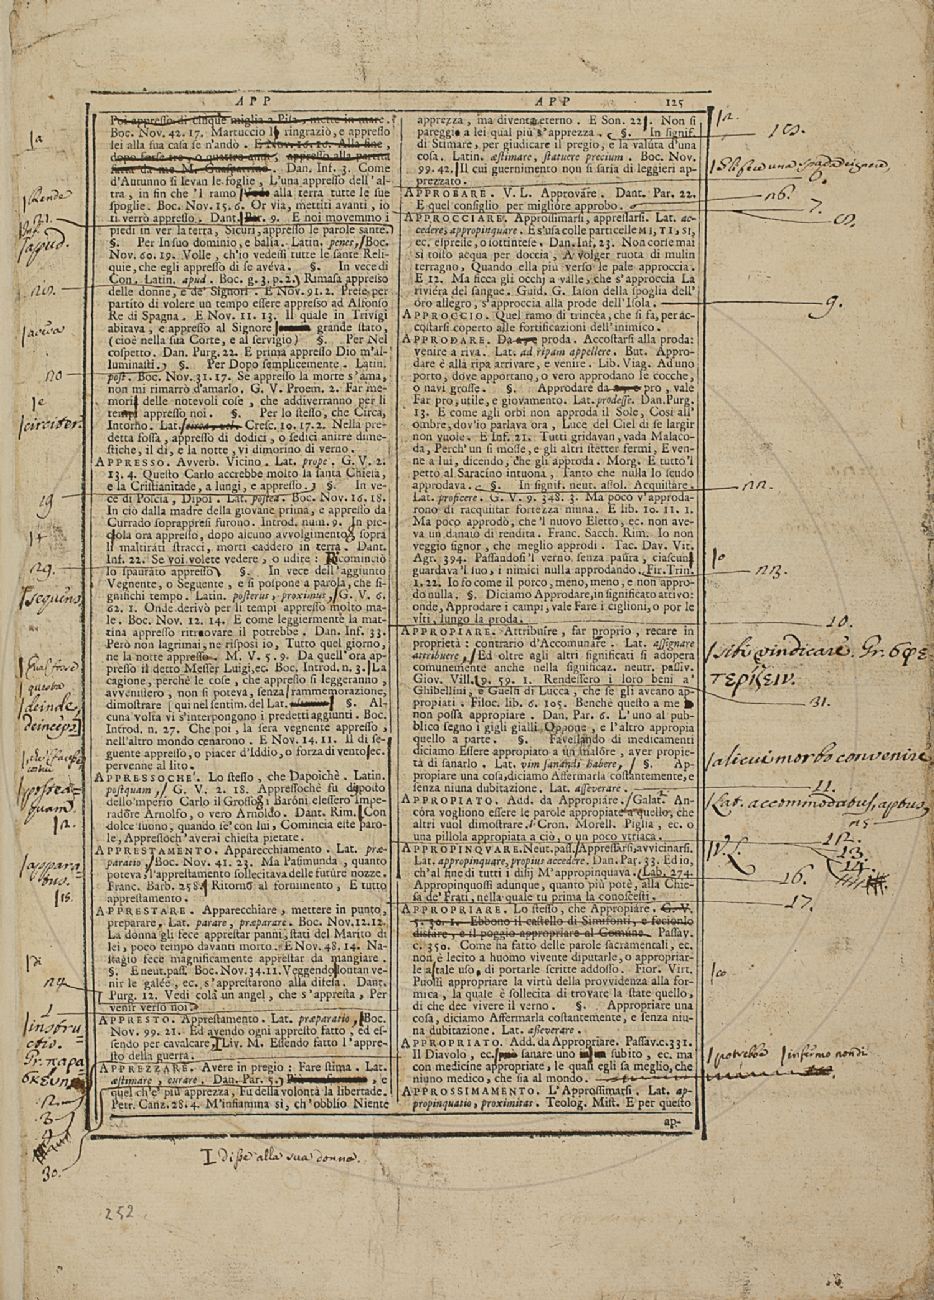 APP
APP
125
Poi appresso di cinque miglia a Pisa, mette in mare.
Boc. Nov. 42. 17. Martuccio il ringraziò, e appresso
lei alla sua casa se n'andò. E Nov. 16. 16. Alla fine,
dopo forse tre, o quattro anni, appresso alla partita
fatta da me M. Guasparrino. Dan. Inf. 3. Come
d'Autunno si levan le foglie, L'una appresso dell'al-
tra, in fin che 'l ramo alla terra tutte le sue
spoglie. Boc. Nov. 15. 6. Or via, mettiti avanti, io
ti verrò appresso. Dant. 9. E noi movemmo i
piedi in ver la terra, Sicuri, appresso le parole sante.
§. Per In suo dominio, e balìa. Latin. penes, Boc.
Nov. 60. 19. Volle, ch'io vedessi tutte le sante Reli-
quie, che egli appresso di se aveva. §. In vece di
Con. Latin. apud. Boc. g. 3. p. 2. Rimasa appresso
delle donne, e de' Signori. E Nov. 91. 2. Prese per
partito di volere un tempo essere appresso ad Alfonso
Re di Spagna. E Nov. 11. 13. Il quale in Trivigi
abitava, e appresso al Signore grande stato,
(cioè nella sua Corte, e al servigio) §. Per Nel
cospetto. Dan. Purg. 22. E prima appresso Dio m'al-
luminasti. §. Per Dopo semplicemente. Latin.
post. Boc. Nov. 31. 17. Se appresso la morte s'ama,
non mi rimarrò d'amarlo. G. V. Proem. 2. Far me-
moria delle notevoli cose, che addiverranno per li
tempi appresso noi. §. Per lo stesso, che Circa,
Intorno. Lat. Cresc. 10. 17. 2. Nella pre-
detta fossa, appresso di dodici, o sedici anitre dime-
stiche, il dì, e la notte, vi dimorino di verno.
APPRESSO. Avverb. Vicino. Lat. prope. G. V. 2.
13. 4. Questo Carlo accrebbe molto la santa Chiesa,
e la Cristianitade, a lungi, e appresso. §. In ve-
ce di Poscia, Dipoi. Lat. postea. Boc. Nov. 16. 18.
In ciò dalla madre della giovane prima, e appresso da
Currado soprappresi furono. Introd. num. 9. In pic-
ciola ora appresso, dopo alcuno avvolgimento, sopra
li maltirati stracci, morti caddero in terra. Dant.
Inf. 22. Se voi volete vedere, o udire: Ricominciò
lo spaurato appresso. §. In vece dell'aggiunto
Vegnente, o Seguente, e si pospone a parola, che si-
gnifichi tempo. Latin. posterus, proximus, G. V. 6.
62. 1. Onde derivò per li tempi appresso molto ma-
le. Boc. Nov. 12. 14. E come leggiermente la mat-
tina appresso ritrovare il potrebbe. Dan. Inf. 33.
Però non lagrimai, ne risposi io, Tutto quel giorno,
ne la notte appresso. M. V. 5. 9. Da quell'ora ap-
presso il detto Messer Luigi, ec. Boc. Introd. n. 3. La
cagione, perchè le cose, che appresso si leggeranno,
avvenissero, non si poteva, senza rammemorazione,
dimostrare (qui nel sentim. del Lat. ) §. Al-
cuna volta vi s'interpongono i predetti aggiunti. Boc.
Introd. n. 27. Che poi, la sera vegnente appresso,
nell'altro mondo cenarono. E Nov. 14. 11. Il dì se-
guente appresso, o piacer d'Iddio, o forza di vento, ec.
pervenne al lito.
APPRESSOCHÈ. Lo stesso, che Dapoichè. Latin.
postquam, G. V. 2. 18. Appressochè fu disposto
dello'mperio Carlo il Grosso, i Baroni elessero Impe-
radore Arnolfo, o vero Arnoldo. Dant. Rim. Con
dolce suono, quando se' con lui, Comincia este paro-
le, Appressoch'averai chiesta pietate.
APPRESTAMENTO. Apparecchiamento. Lat. præ-
paratio, Boc. Nov. 41. 23. Ma Pasimunda, quanto
poteva, l'apprestamento sollecitava delle future nozze.
Franc. Barb. 258. Ritorno al fornimento, E tutto
apprestamento.
APPRESTARE. Apparecchiare, mettere in punto,
preparare. Lat. parare, præparare. Boc. Nov. 12. 12.
La donna gli fece apprestar panni, stati del Marito di
lei, poco tempo davanti morto. E Nov. 48. 14. Na-
stagio fece magnificamente apprestar da mangiare.
§. E neut. pass. Boc. Nov. 34. 11. Veggendo lontan ve-
nir le galée, ec. s'apprestarono alla difesa. Dant.
Purg. 12. Vedi colà un angel, che s'appresta, Per
venir verso noi.
APPRESTO. Apprestamento. Lat. præparatio, Boc.
Nov. 99. 21. Ed avendo ogni appresto fatto, ed es-
sendo per cavalcare, Liv. M. Essendo fatto l'appre-
sto della guerra.
APPREZZARE. Avere in pregio: Fare stima. Lat.
æstimare, curare. Dan. Par. 5. , e
quel ch'e' più apprezza, Fu della volontà la libertade.
Petr. Canz. 28. 4. M'infiamma sì, ch'obblio Niente
apprezza, ma diventa eterno. E Son. 22. Non si
pareggi a lei qual più s'apprezza. §. In signif.
di Stimare, per giudicare il pregio, e la valuta d'una
cosa. Latin. æstimare, statuere precium. Boc. Nov.
99. 42. Il cui guernimento non si saria di leggieri ap-
prezzato.
APPROBARE. V. L. Approvare. Dant. Par. 22.
E quel consiglio per migliore approbo.
APPROCCIARE. Approssimarsi, appressarsi. Lat. ac-
cedere, appropinquare. E s'usa colle particelle MI, TI, SI,
ec. espresse, o sottintese. Dan. Inf. 23. Non corse mai
sì tosto acqua per doccia, A volger ruota di mulin
terragno, Quando ella più verso le pale approccia.
E 12. Ma ficca gli occhi a valle, che s'approccia La
riviéra del sangue. Guid. G. Iason della spoglia dell'
oro allegro, s'approccia alla prode dell'Isola.
APPROCCIO. Quel ramo di trincéa, che si fa, per ac-
costarsi coperto alle fortificazioni dell'inimico.
APPRODARE. Da proda. Accostarsi alla proda:
venire a riva. Lat. ad ripam appellere. But. Appro-
dare è alla ripa arrivare, e venire. Lib. Viag. Ad uno
porto, dove apportano, o vero approdano le cocche,
o navi grosse. §. Approdare da pro, vale
Far pro, utile, e giovamento. Lat. prodesse. Dan. Purg.
13. E come agli orbi non approda il Sole, Così all'
ombre, dov'io parlava ora, Luce del Ciel di se largir
non vuole. E Inf. 21. Tutti gridavan, vada Malaco-
da, Perch'un si mosse, e gli altri stetter fermi, E ven-
ne a lui, dicendo, che gli approda. Morg. E tutto'l
petto al Saracino intuona, Tanto che nulla lo scudo
approdava. §. In signif. neut. assol. Acquistare.
Lat. proficere. G. V. 9. 348. 3. Ma poco v'approda-
rono di racquistar fortezza niuna. E lib. 10. 11. 1.
Ma poco approdò, che 'l nuovo Eletto, ec. non ave-
va un danaio di rendita. Franc. Sacch. Rim. Io non
veggio signor, che meglio approdi. Tac. Dav. Vit.
Agr. 394. Passandosi'l verno senza paura, ciascun
guardava'l suo, i nimici nulla approdando. Fir. Trin.
1. 22. Io fo come il porco, meno, meno, e non appro-
do nulla. §. Diciamo Approdare, in significato attivo:
onde, Approdare i campi, vale Fare i ciglioni, o por le
viti, lungo la proda.
APPROPIARE. Attribuire, far proprio, recare in
proprietà: contrario d'Accomunare. Lat. assignare
attribuere, Ed oltre agli altri significati si adopera
comunemente anche nella significaz. neutr. passiv.
Giov. Vill. 9. 59. 1. Rendessero i loro beni a'
Ghibellini, e Guelfi di Lucca, che se gli aveano ap-
propiati. Filoc. lib. 6. 105. Benchè questo a me
non possa appropiare. Dan. Par. 6. L'uno al pub-
blico segno i gigli gialli Oppone, e l'altro appropia
quello a parte. §. Favellando di medicamenti
diciamo Essere appropiato a un malore, aver propie-
tà di sanarlo. Lat. vim sanandi habere, §. Ap-
propiare una cosa, diciamo Affermarla costantemente, e
senza niuna dubitazione. Lat. asseverare.
APPROPIATO. Add. da Appropiare. Galat. An-
córa vogliono essere le parole appropiate a quello, che
altri vuol dimostrare. Cron. Morell. Piglia, ec. o
una pillola appropiata a ciò, o un poco vtriaca.
APPROPINQVARE. Neut. pass. Appressarsi, avvicinarsi.
Lat. appropinquare, propius accedere. Dan. Par. 33. Ed io,
ch'al fine di tutti i disii M'appropinquava. Lab. 274.
Appropinquossi adunque, quanto più poté, alla Chie-
sa de' Frati, nella quale tu prima la conoscesti.
APPROPRIARE. Lo stesso, che Appropiare. G. V.
5. 30. 1. Ebbono il castello di Simifonti, e feciono
disfare, e il poggio appropriare al Comune. Passav.
c. 350. Come ha fatto delle parole sacramentali, ec.
non è lecito a huomo vivente diputarle, o appropriar-
le a tale uso, di portarle scritte addosso. Fior. Virt.
Puossi appropriare la virtù della provvidenza alla for-
mica, la quale è sollecita di trovare la state quello,
di che dee vivere il verno. §. Appropriare una
cosa, diciamo Affermarla costantemente, e senza niu-
na dubitazione. Lat. asseverare.
APPROPRIATO. Add. da Appropriare. Passav. c. 331.
Il Diavolo, ec. sanare uno subito, ec. ma
con medicine appropriate, le quali egli sa meglio, che
niuno medico, che sia al mondo.
APPROSSIMAMENTO. L'Approssimarsi. Lat. ap-
propinquatio, proximitas. Teolog. Mist. E per questo
ap-
a
Rende
21.
Inf.
apud.
aveva
20
e
circiter.
19
29.
sequens,
deinde,
deinceps
postea=
quam
appara
tus.
Di
1
instru
ctio.
Gr. παρα
σκευη
2.
3.
4
30.
I disse alla sua donna.
252
7.
8.
9.
22.
23.
10.
sibi vindicare. Gr. σφε
τερίζειν.
31.
alicui morbo convenire
11.
Lat. accommodatus, aptus.
V. L.
12.
13.
14.
16.
17.
potrebbe
infermo